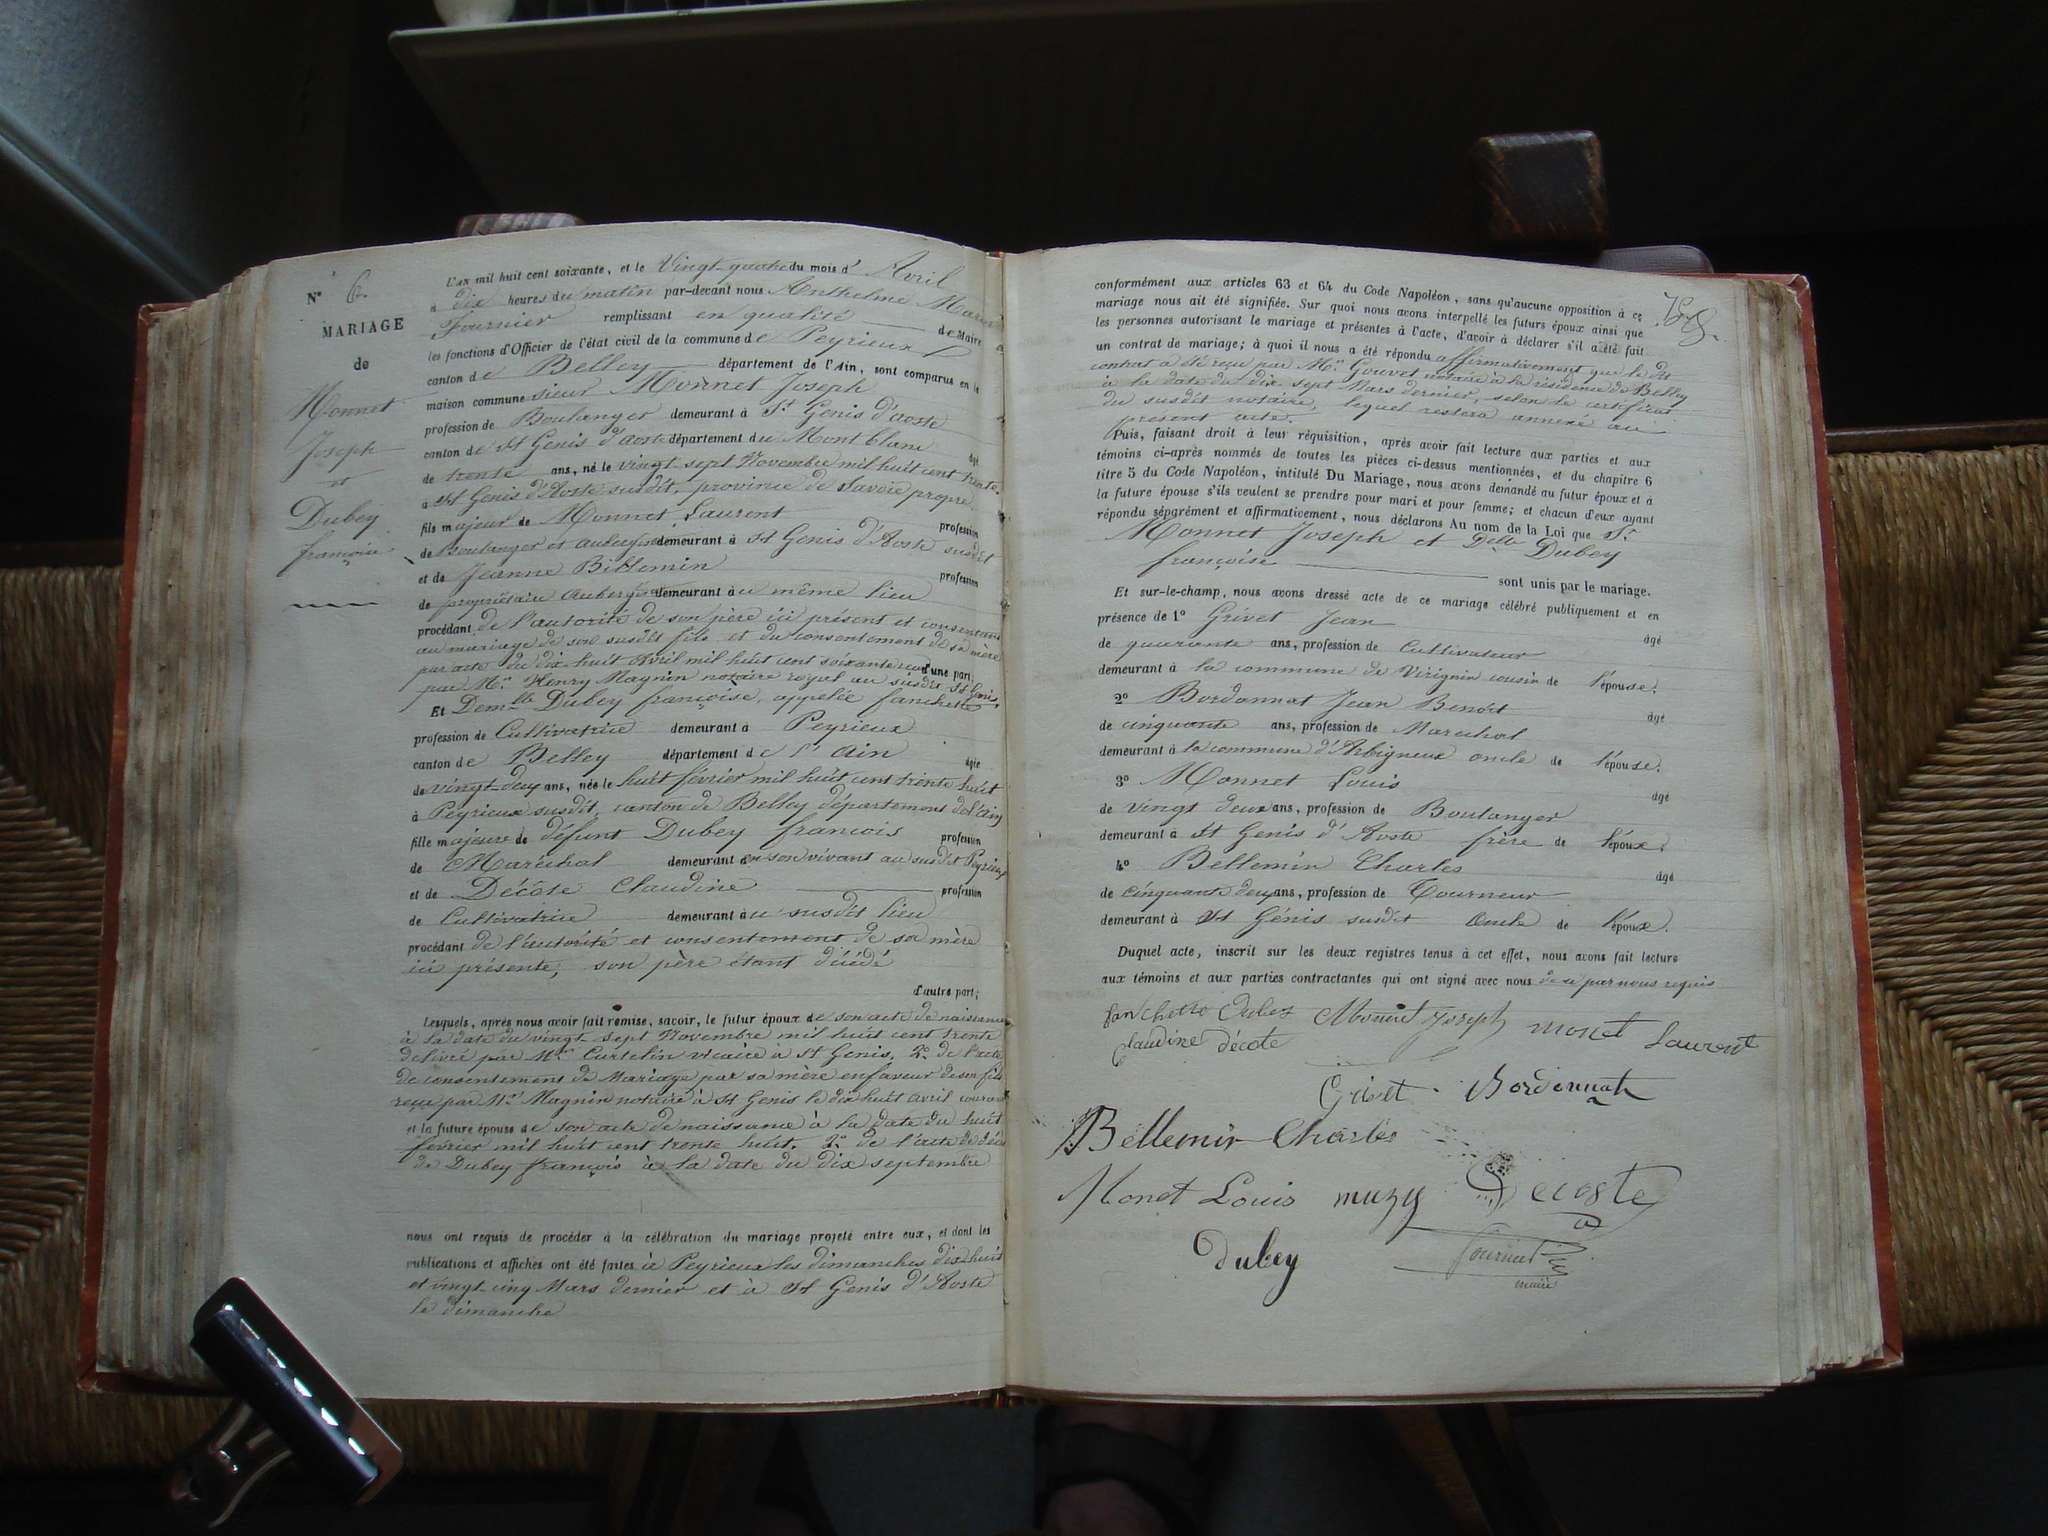 N° 6.
MARIAGE
de
Monnet
Joseph
et
Dubey
françoise
L'an mil huit cent soixante, et le Vingt-quatre du mois d' Avril
à dix heures du matin par-devant nous Anthelme Marin
Fournier remplissant en qualité de Maire
les fonctions d'Officier de l'état civil de la commune de Peyrieux
canton de Belley département de l'Ain, sont comparus en la
maison commune sieur Monnet Joseph
profession de Boulanger demeurant à St Genis d'aoste
canton de St Genis d'aoste département du Mont blanc âgé
de trente ans, né le vingt sept Novembre mil huit cent trente
à St Genis d'Aoste susdit, province de Savoie propre
fils majeur de Monnet Laurent profession
de Boulanger et aubergiste demeurant à St Genis d'Aoste susdit
et de Jeanne Billemin profession
de propriétaire Aubergiste demeurant au même lieu
procédant de l'autorité de son père ici présent et consentant
au mariage de son susdit fils et du consentement de sa mère
par acte du dix-huit Avril mil huit cent soixante reçu d'une part;
par Me Henry Magnin notaire royal au susdit St Genis,
Et Demlle Dubey françoise, appelée fanchette
profession de Cultivatrice demeurant à Peyrieux
canton de Belley département de l'Ain âgée
de vingt-deux ans, née le huit février mil huit cent trente huit
à Peyrieux susdit, canton de Belley département de l'Ain
fille majeure de défunt Dubey françois profession
de Maréchal demeurant en son vivant au susdit Peyrieux
et de Décôte Claudine profession
de Cultivatrice demeurant au susdit lieu
procédant de l'autorité et consentement de sa mère
ici présente, son père étant décédé
d'autre part;
Lesquels, après nous avoir fait remise, savoir, le futur époux de son acte de naissance
à la date du vingt sept Novembre mil huit cent trente
délivré par Mr Curtelin vicaire à St Genis, 2° de l'acte
de consentement de Mariage par sa mère en faveur de son fils
reçu par Me Magnin notaire à St Genis le dix huit avril courant
et la future épouse de son acte de naissance à la date du huit
fevrier mil huit cent trente huit. 2° de l'acte de décès
de Dubey françois à la date du dix septembre
nous ont requis de procéder à la célébration du mariage projeté entre eux, et dont les
publications et affiches ont été faites à Peyrieux les dimanches dix-huit
et vingt-cinq Mars dernier et à St Genis d'Aoste
le dimanche
conformément aux articles 63 et 64 du Code Napoléon, sans qu'aucune opposition à ce
mariage nous ait été signifiée. Sur quoi nous avons interpellé les futurs époux ainsi que
les personnes autorisant le mariage et présentes à l'acte, d'avoir à déclarer s'il a été fait
un contrat de mariage; à quoi il nous a été répondu affirmativement que le dit
contrat a été reçu par Me Gouvet notaire à la résidence de Belley
à la date du dix sept Mars dernier, selon le certificat
du susdit notaire, lequel restera annexé au
présent acte.
Puis, faisant droit à leur réquisition, après avoir fait lecture aux parties et aux
témoins ci-après nommés de toutes les pièces ci-dessus mentionnées, et du chapitre 6
titre 5 du Code Napoléon, intitulé Du Mariage, nous avons demandé au futur époux et à
la future épouse s'ils veulent se prendre pour mari et pour femme; et chacun d'eux ayant
répondu séparément et affirmativement, nous déclarons Au nom de la Loi que Sr
Monnet Joseph et Delle Dubey
françoise sont unis par le mariage.
Et sur-le-champ, nous avons dressé acte de ce mariage célébré publiquement et en
présence de 1° Grivet Jean âgé
de quarante ans, profession de Cultivateur
demeurant à la commune de Virignin cousin de l'épouse.
2° Bordonnat Jean Benoit âgé
de cinquante ans, profession de Marechal
demeurant à la commune d'Arbigneux oncle de l'épouse.
3° Monnet Louis âgé
de vingt deux ans, profession de Boulanger
demeurant à St Genis d'Aoste frère de l'époux.
4° Bellemin Charles âgé
de cinquante deux ans, profession de Tourneur
demeurant à St Génis susdit Oncle de l'époux.
Duquel acte, inscrit sur les deux registres tenus à cet effet, nous avons fait lecture
aux témoins et aux parties contractantes qui ont signé avec nous de ce par nous requis
fanchette Dubey Monnet Joseph monet Laurent
Claudine décote
Grivet Bordonnat
Bellemin Charles
Monet Louis muzy Decoste
Dubey Fournier
maire